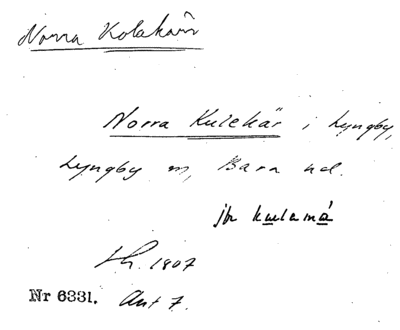 Norra Kolakärr
Norra Kulekär i Lyngby,
Lyngby sn, Bara hd.
jfr kulamå
1807
Nr 6331. Akt 7.